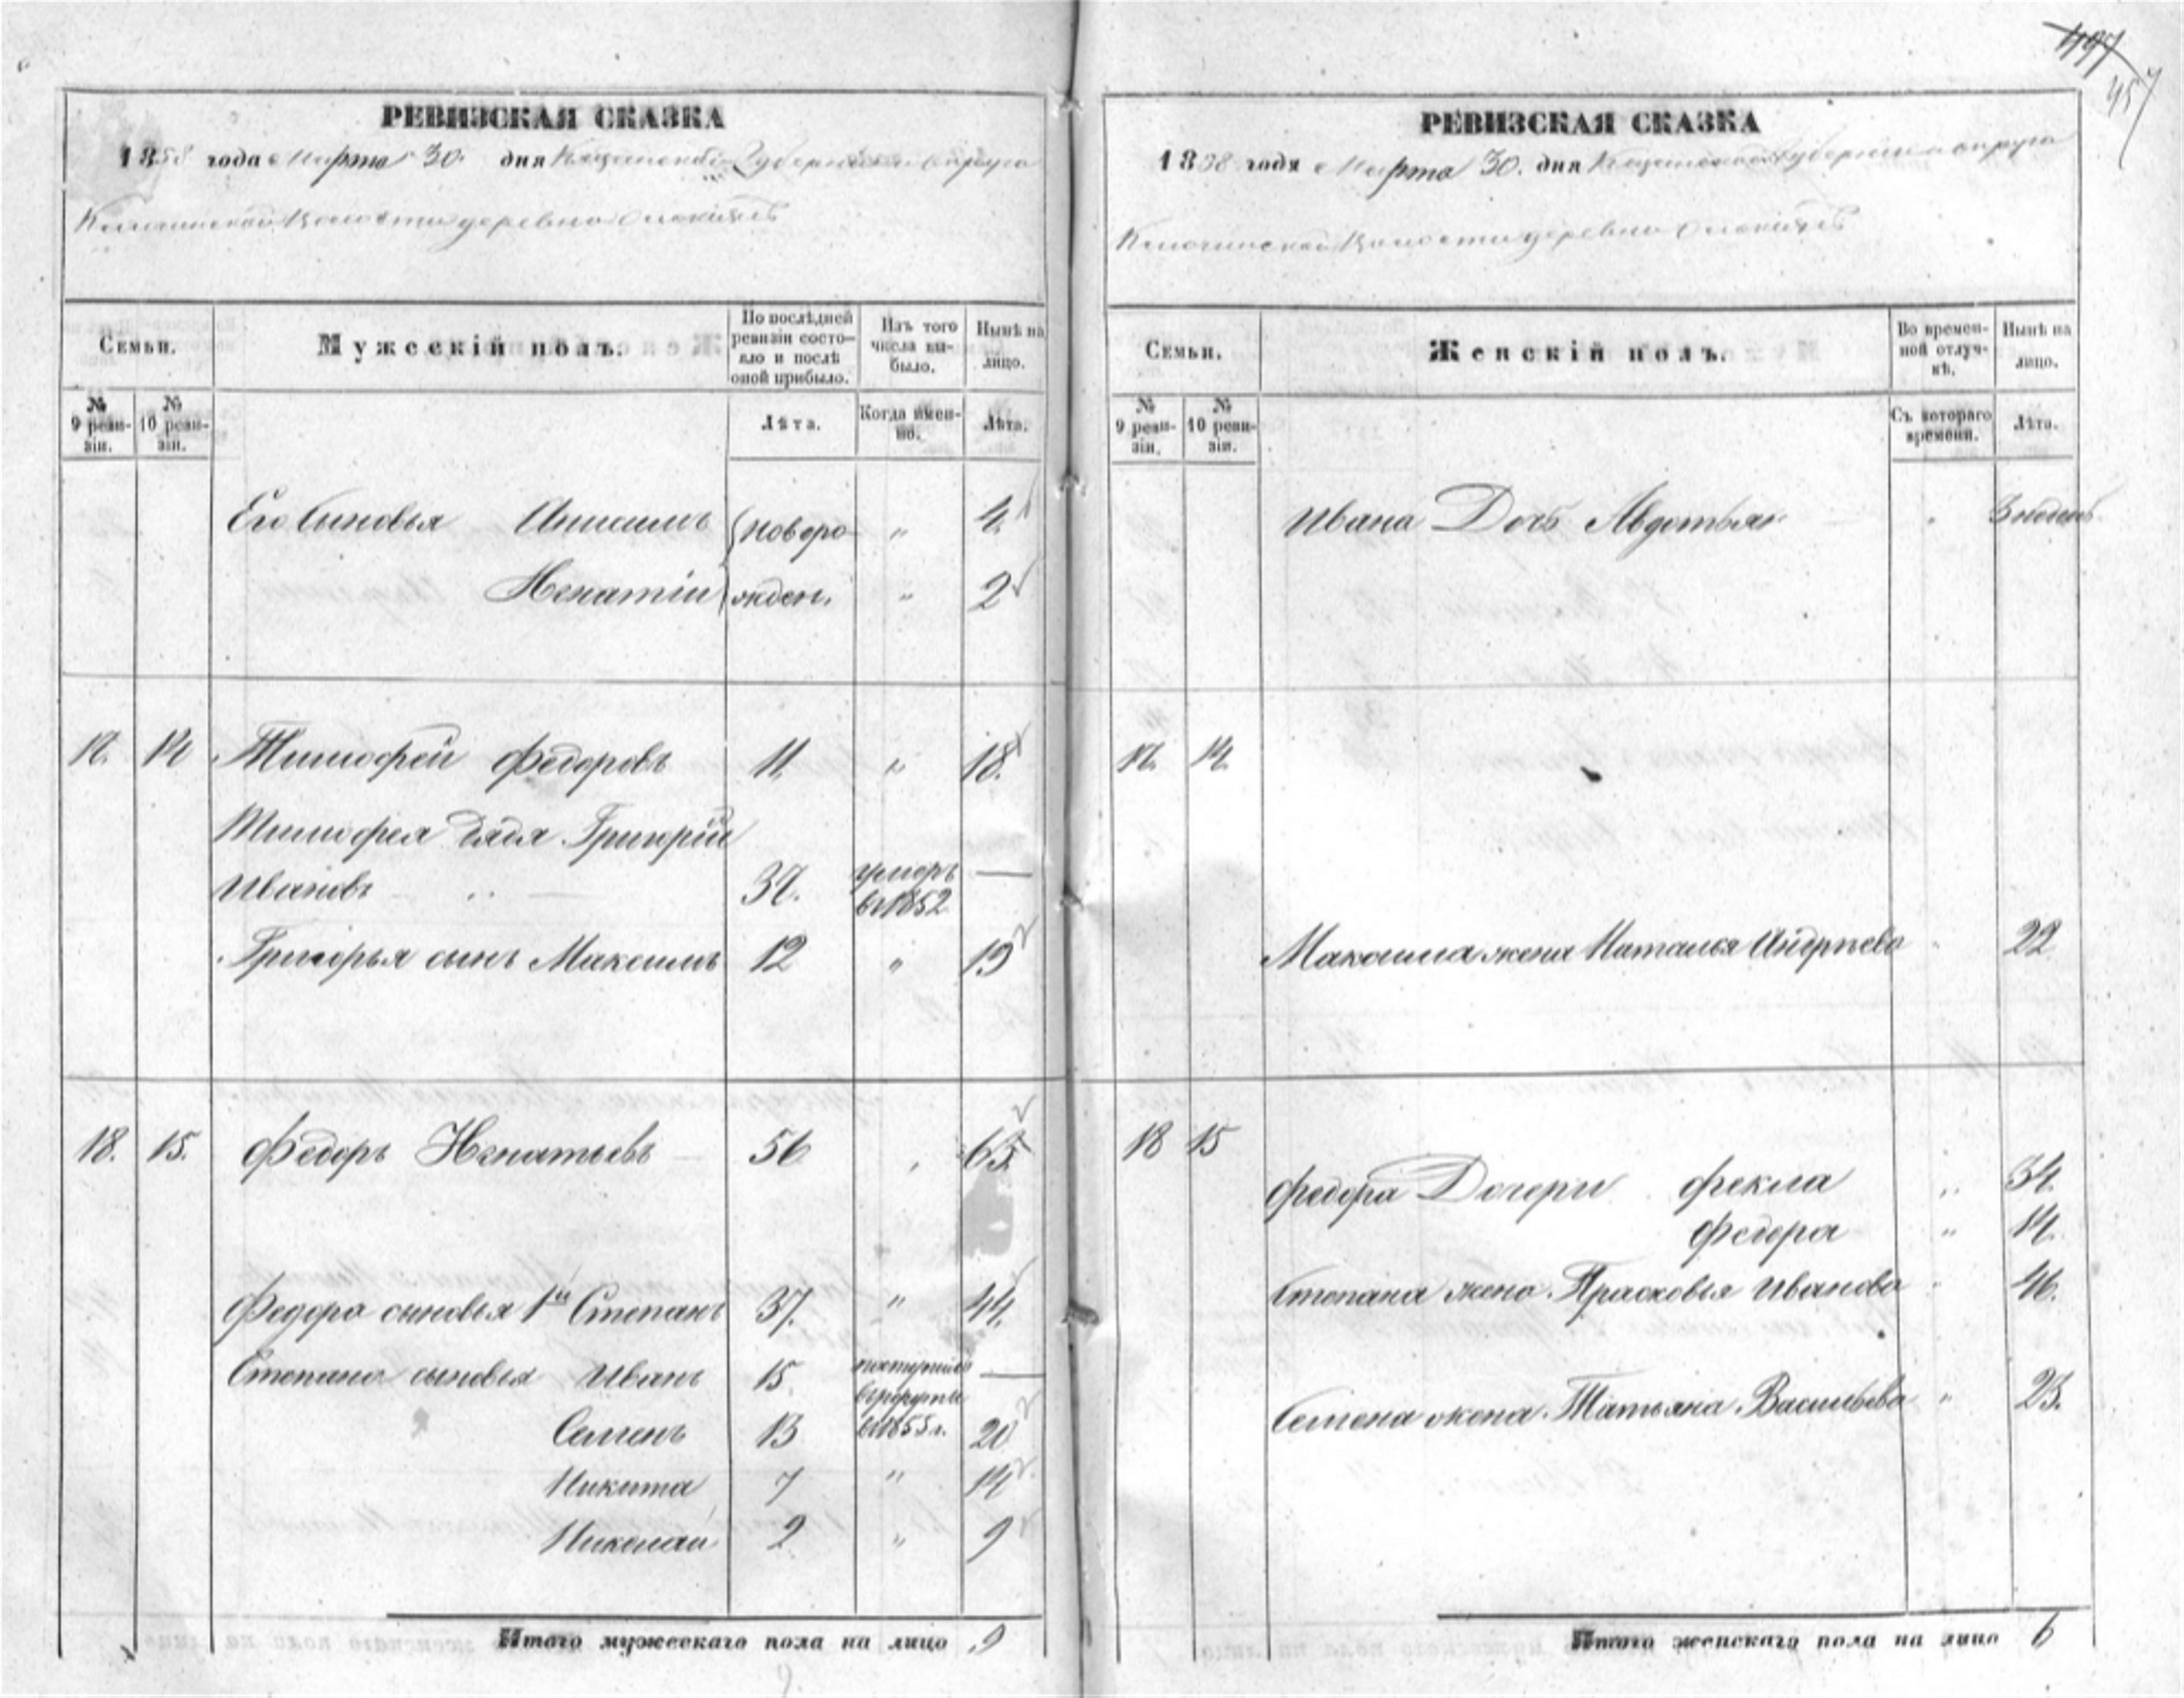 497
457
РЕВИЗСКАЯ СКАЗКА
1858 года Марта 30. дня Казанской Губернии и округа
Волости деревни
Семьи.
Мужескій полъ.
По послѣдней ревизіи состояло и послѣ оной прибыло.
Изъ того числа выбыло.
Нынѣ на лицо.
№ 9 ревизіи.
№ 10 ревизіи.
Лѣта.
Когда имен-но.
Лѣта.
Его Сыновья Анисимъ новоро- " 4
Игнатіи жден. " 2
17. 14 Тимофей Федоровъ 11 " 18.
Тимофея дядя Григорій
Ивановъ 37. умеръ в 1852 —
Григорья сынъ Максимъ 12 " 19
18. 15. Федоръ Игнатьевъ 56 " 63
Федора сыновья 1й Степанъ 37. " 44.
Степана сыновья Иванъ 15 поступилъ в рекруты в 1855 г. —
Семенъ 13 20
Никита 7 " 14
Николай 2 " 9
Итого мужескаго пола на лицо 9
РЕВИЗСКАЯ СКАЗКА
1858 года Марта 30. дня Казанской Губернии и округа
Волости деревни
Семьи.
Женскій полъ.
Во времен-ной отлуч-кѣ.
Нынѣ на лицо.
№ 9 ревизіи.
№ 10 ревизіи.
Съ котораго времени.
Лѣта.
Ивана Дочь Авдотья " 3 недель
17. 14.
Максима жена Наталья Андреева " 22
18 15
Федора Дочери Фекла " 34.
Федора " 14.
Степана жена Прасковья Иванова " 46.
Семена жена Татьяна Васильева " 23.
Итого женскаго пола на лицо 6